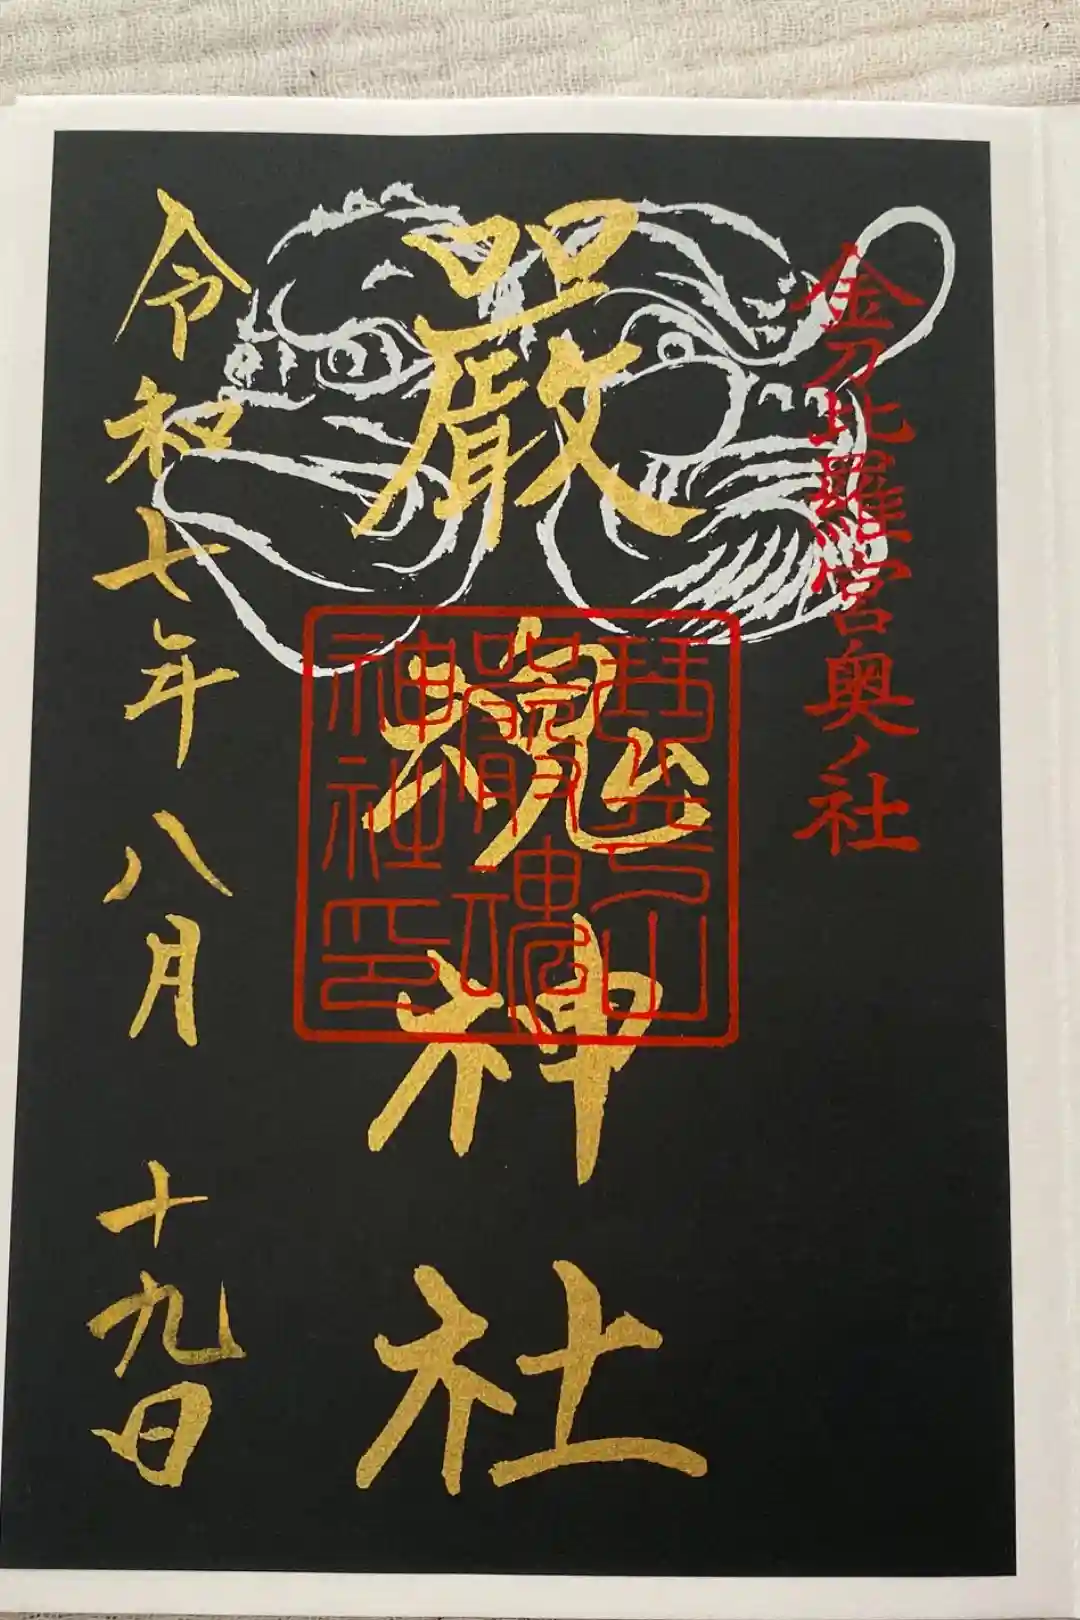 金刀比羅宮奥ノ社
嚴魂神社
令和七年八月十九日
琴平山
嚴魂
神社印